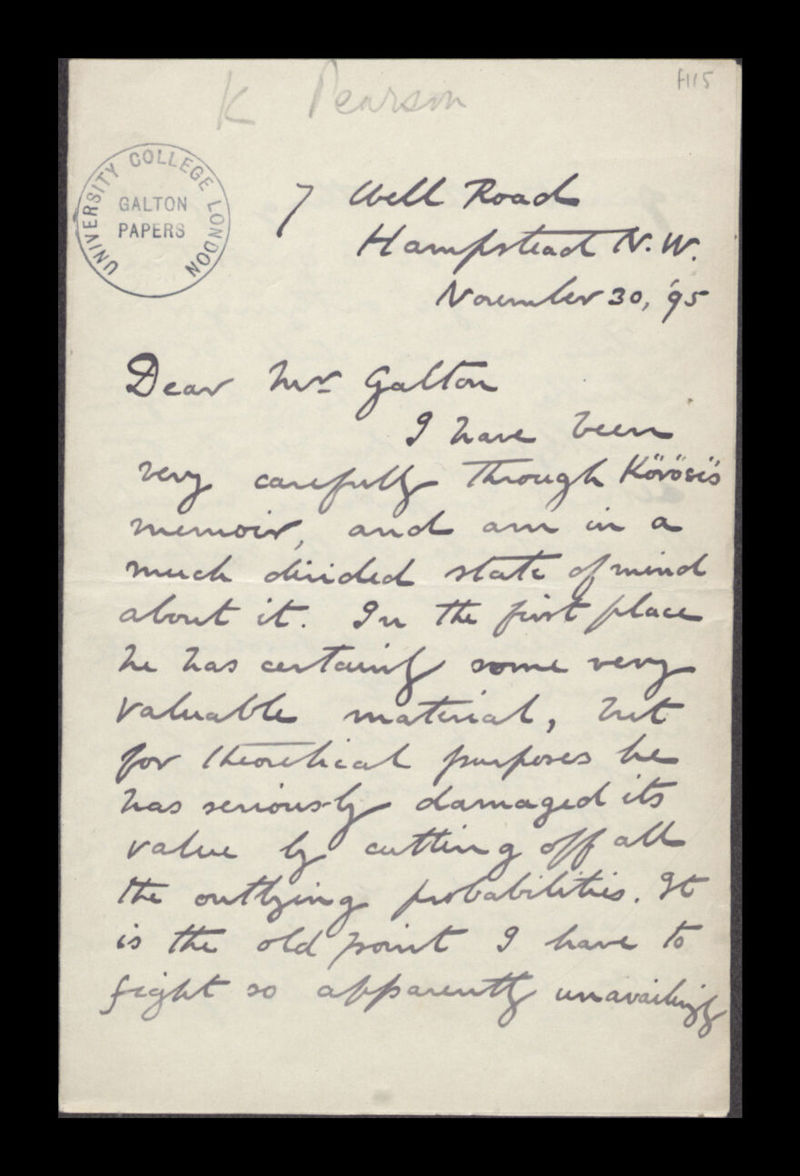 K Pearson
f115
UNIVERSITY COLLEGE LONDON
GALTON
PAPERS
7 Well Road
Hampstead N.W.
November 30, '95
Dear Mr Galton
I have been
very carefully through Körösi's
memoir, and am in a
much divided state of mind
about it. In the first place
he has certainly some very
valuable material, but
for theoretical purposes he
has seriously damaged its
value by cutting off all
the outlying probabilities. It
is the old point I have to
fight so apparently unavailingly